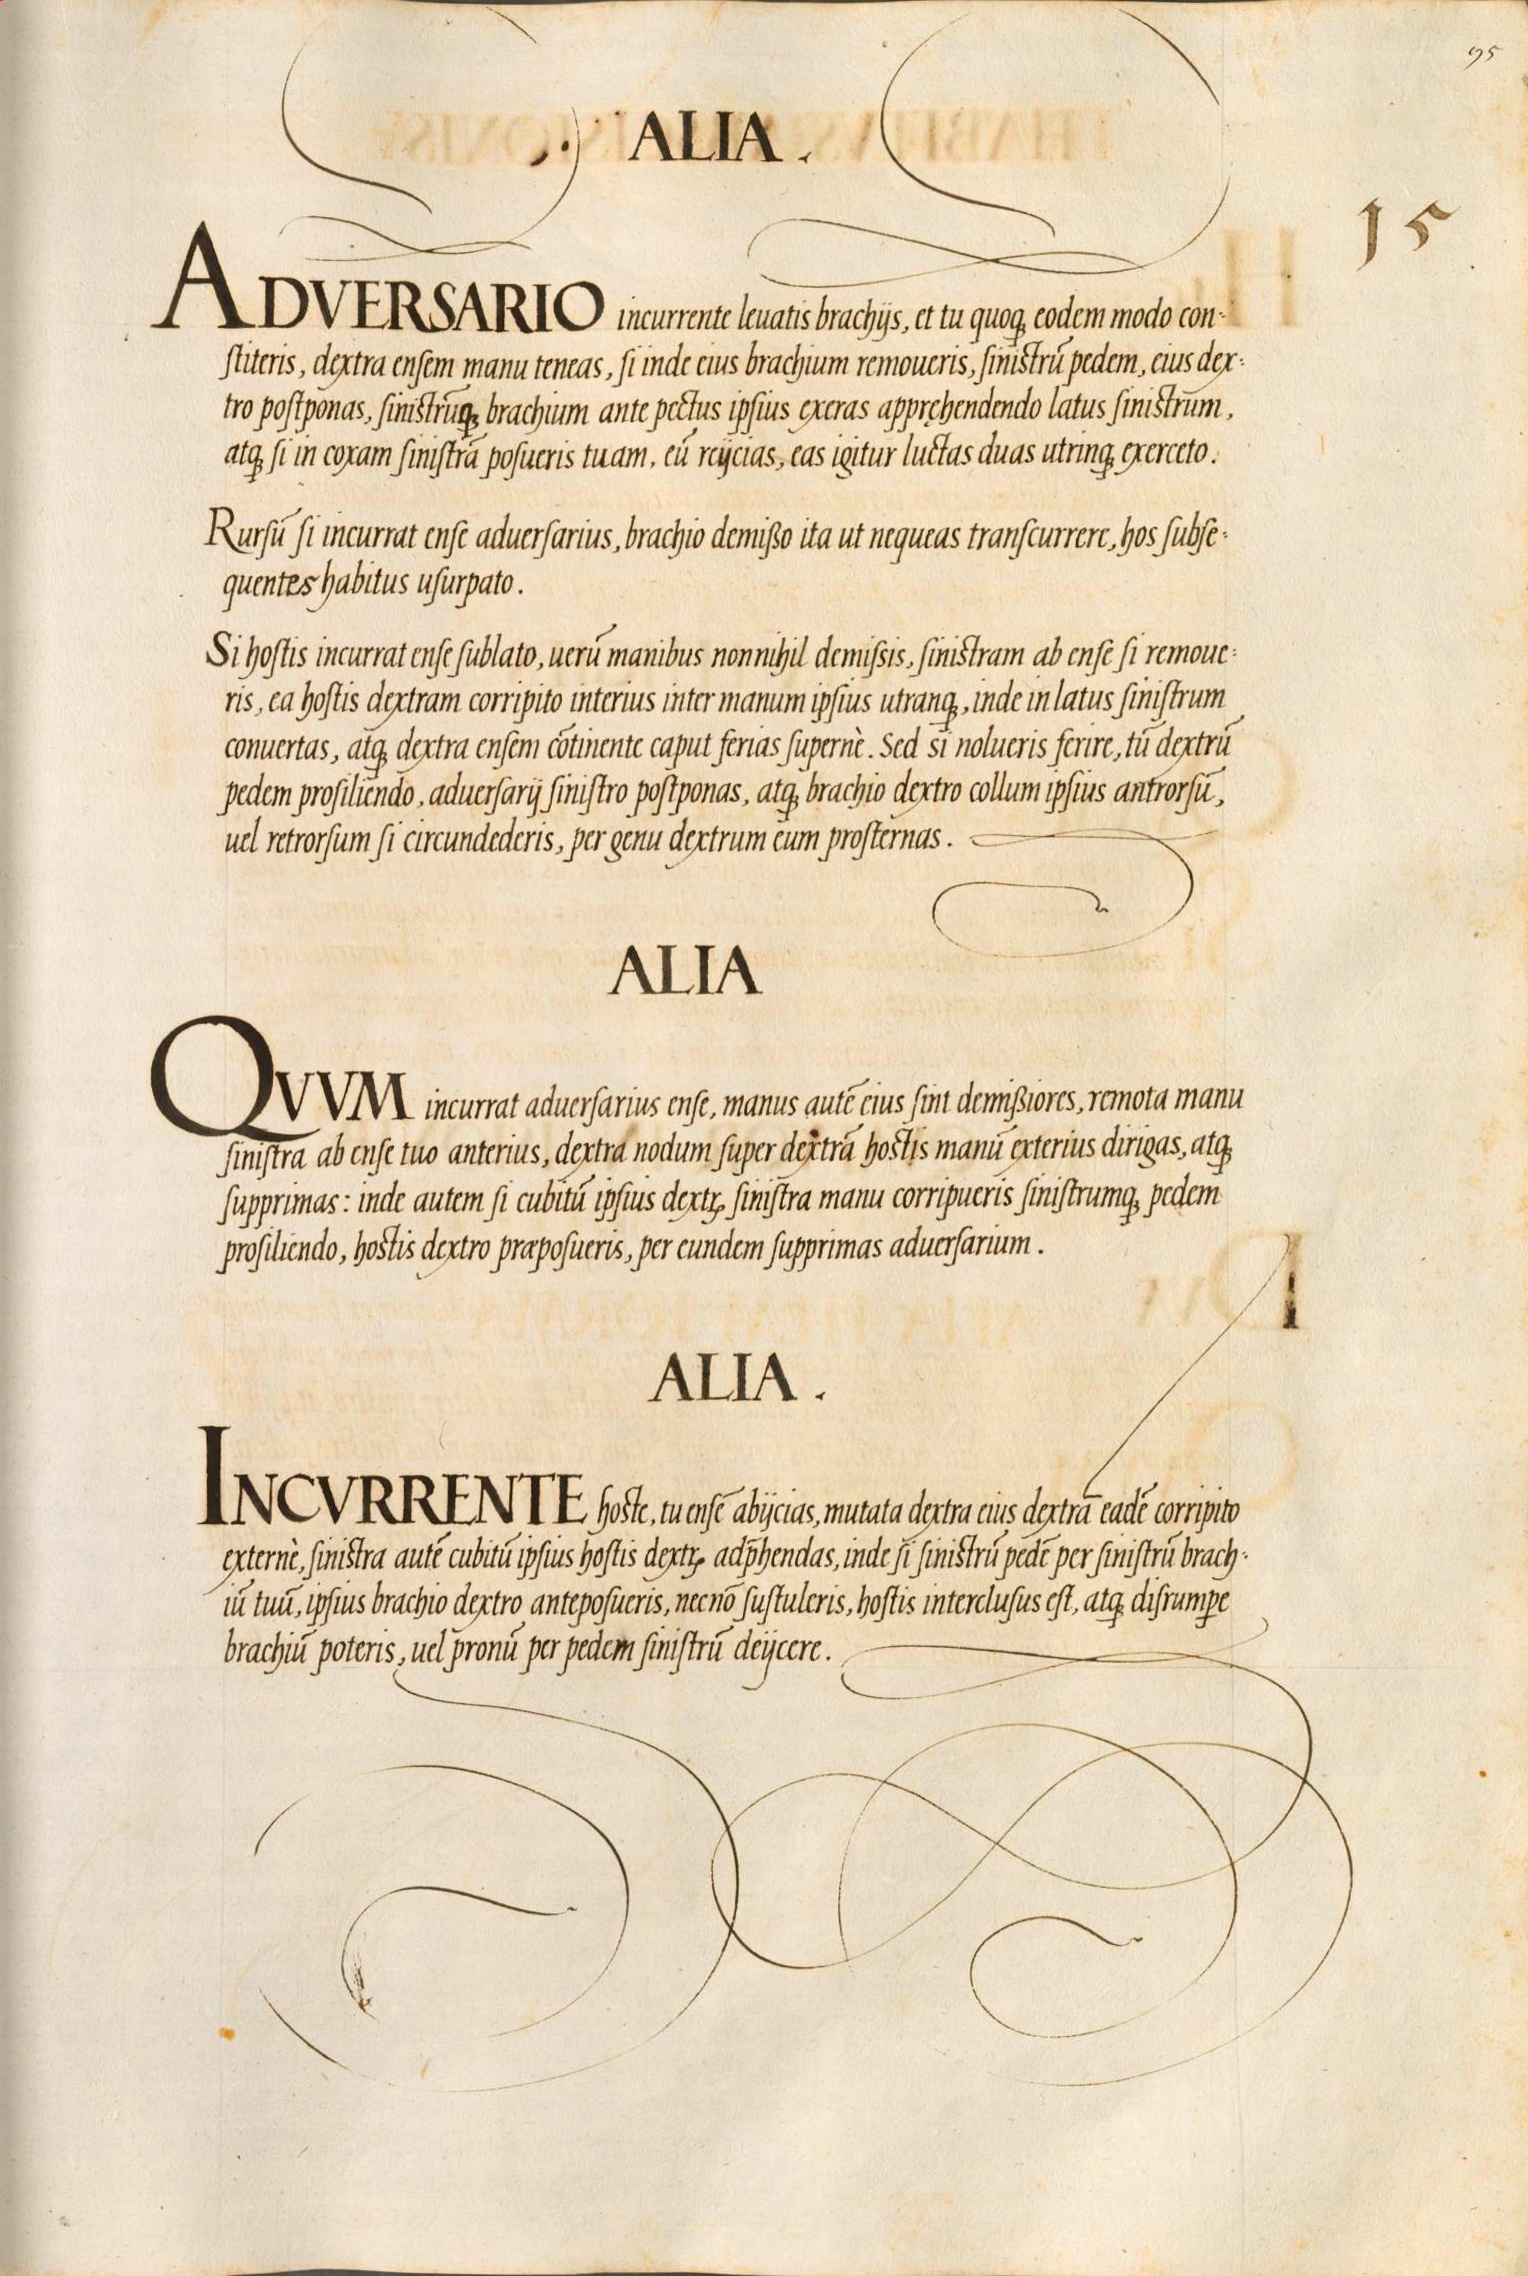 95
ALIA.
15
ADVERSARIO incurrente leuatis brachijs, et tu quoq̨ eodem modo con-
stiteris, dextra ensem manu teneas, si inde eius brachium remoueris, sinistrū pedem, eius dex-
tro postponas, sinistrūq̨ brachium ante pectus ipsius exeras appręhendendo latus sinistrum,
atq̨ si in coxam sinistrā posueris tuam, eū reijcias, eas igitur luctas duas utrinq̨ exerceto.
Rursū si incurrat ense aduersarius, brachio demißo ita ut nequeas transcurrere, hos subse-
quentes habitus usurpato.
Si hostis incurrat ense sublato, uerū manibus nonnihil demissis, sinistram ab ense si remoue-
ris, ea hostis dextram corripito interius inter manum ipsius utranq̨, inde in latus sinistrum
conuertas, atq̨ dextra ensem cōtinente caput ferias supernè. Sed si nolueris ferire, tū dextrū
pedem prosiliendo, aduersarij sinistro postponas, atq̨ brachio dextro collum ipsius antrorsū,
uel retrorsum si circundederis, per genu dextrum eum prosternas.
ALIA
QVVM incurrat aduersarius ense, manus autē eius sint demißiores, remota manu
sinistra ab ense tuo anterius, dextra nodum super dextrā hostis manū exterius dirigas, atq̨
supprimas: inde autem si cubitū ipsius dextrꝫ sinistra manu corripueris sinistrumq̨ pedem
prosiliendo, hostis dextro præposueris, per eundem supprimas aduersarium.
ALIA.
INCVRRENTE hoste, tu ensē abijcias, mutata dextra eius dextrā eadē corripito
externè, sinistra autē cubitū ipsius hostis dextrꝫ adp̄hendas, inde si sinistrū pedē per sinistrū brach-
iū tuū, ipsius brachio dextro anteposueris, necnō sustuleris, hostis interclusus est, atq̨ disrumpe
brachiū poteris, uel pronū per pedem sinistrū deijcere.